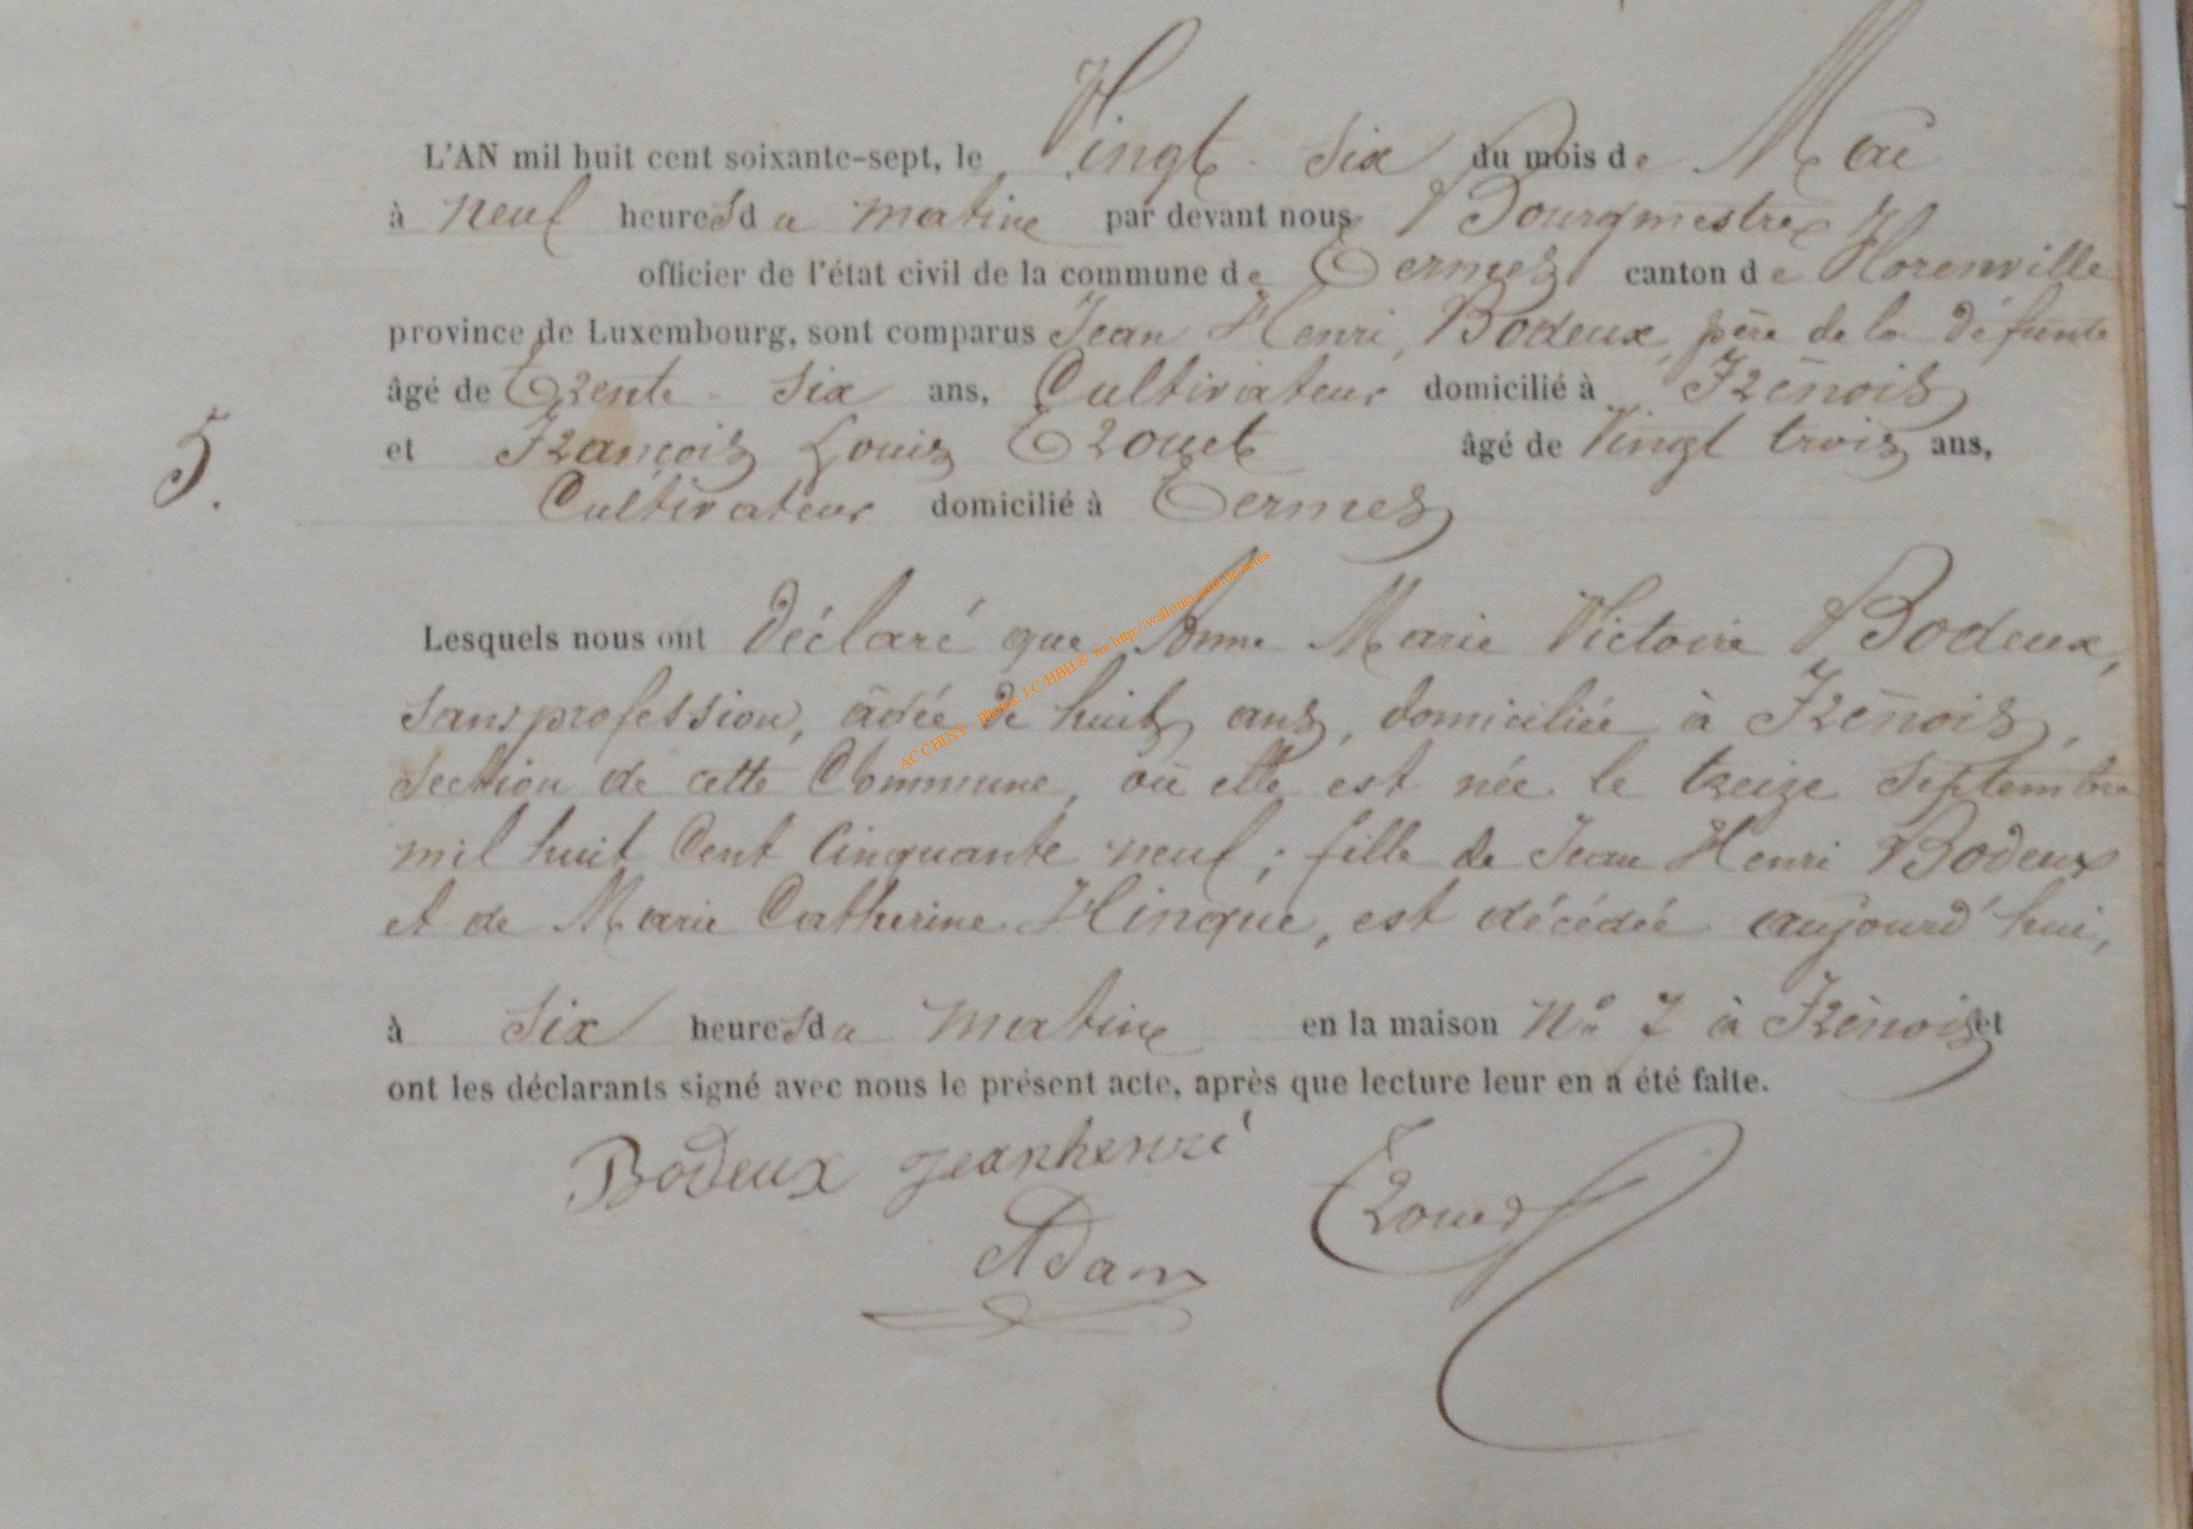 L'AN mil huit cent soixante-sept, le Vingt-six du mois de Mai
à neuf heures du matin par devant nous Bourgmestre
officier de l'état civil de la commune de Termes canton de Florenville
province de Luxembourg, sont comparus Jean Henri, Bodeux, père de la défunte
âgé de Trente-six ans, Cultivateur domicilié à Frênois
5. et François Louis Trouet âgé de Vingt trois ans,
Cultivateur domicilié à Termes
Lesquels nous ont déclaré que Anne Marie Victoire Bodeux,
sans profession, âdée de huit ans, domiciliée à Frênois,
Section de cette Commune, où elle est née le treize Septembre
mil huit Cent Cinquante neuf; fille de Jean Henri Bodeux
et de Marie Catherine Hinque, est décédée aujourd'hui,
à six heures du matin en la maison N° 7 à Frênois et
ont les déclarants signé avec nous le présent acte, après que lecture leur en a été faite.
Bodeux jeanhenri Trouet
Adam
AC CHINY - photos: J.C/HBH ® via http://wallonia.asbl.be/actes